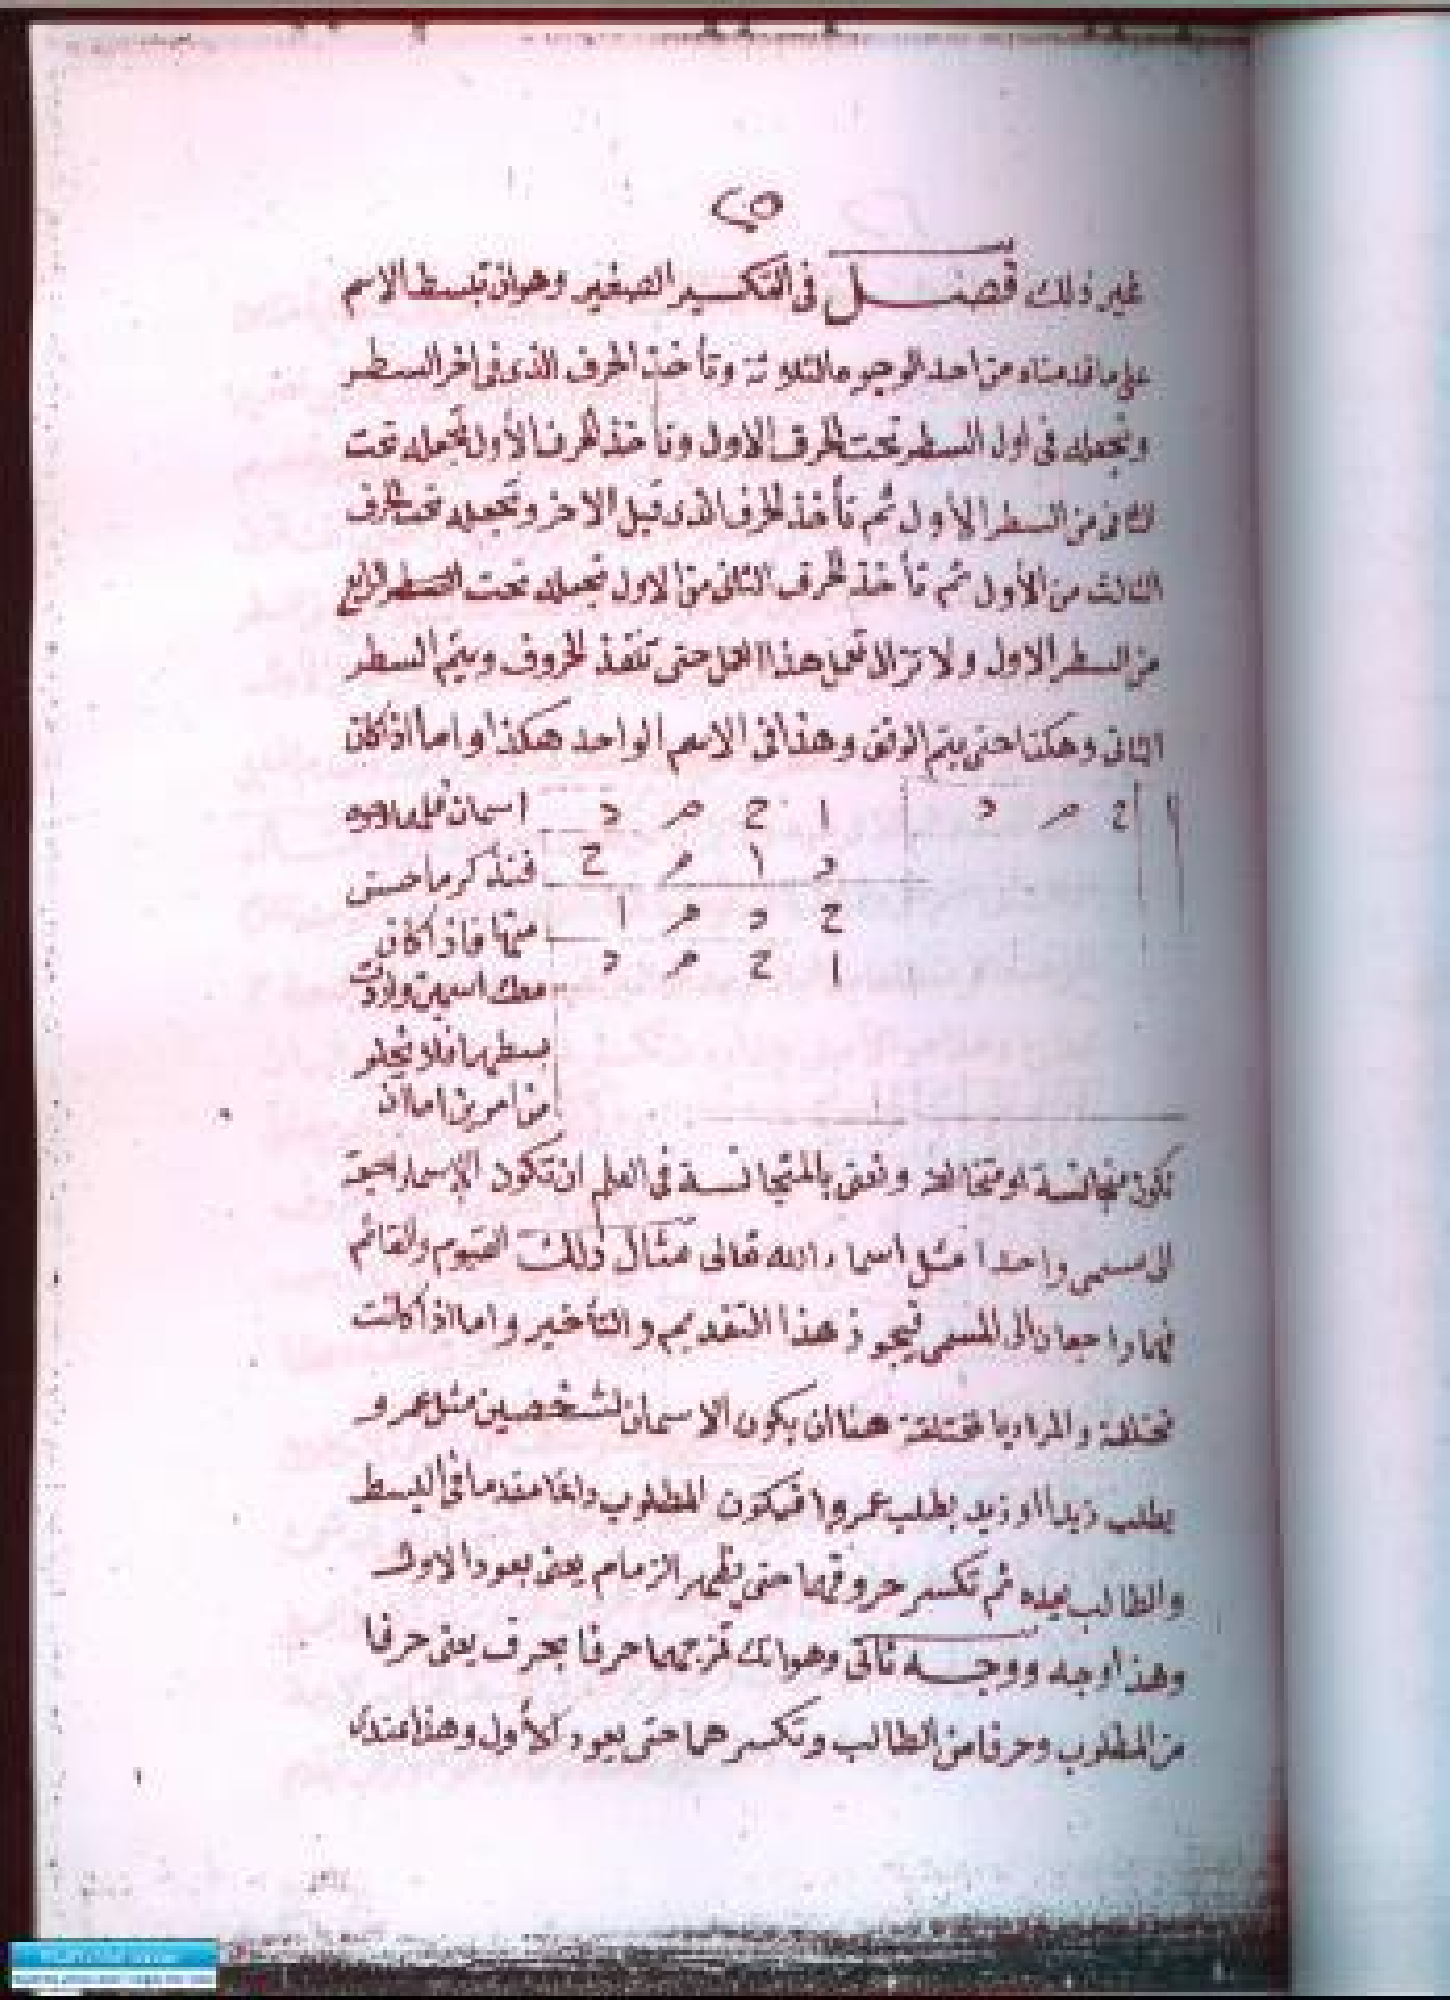 ٢٥
غير ذلك فصل في التكسير الصغير وهو ان تبسط الاسم
على ما قدمناه من احد الوجوه الثلاثة وتأخذ الحرف الذى فى اخر السطر
وتجعله فى اول السطر تحت الحرف الاول وتأخذ الحرف الأول تجعله تحت
الثانى من السطر الأول ثم تأخذ الحرف الذى قبل الاخر وتجعله تحت الحرف
الثالث من الأول ثم تأخذ الحرف الثانى من الاول تجعله تحت السطر الرابع
من السطر الاول ولا تزال تعمل هذا العمل حتى تنفذ الحروف ويتم السطر
الثانى وهكذا حتى يتم الوفق وهذا فى الاسم الواحد هكذا واما اذا كان
ا ح م د
ا ح م د اسمان فعلى
د ا م ح فنذكر ما حسن
ح د م ا منها فاذا كان
ا ح م د معك اسمين واردت
بسطهما فلا يخلو
من امرين اما ان
تكون متجانسة او متخالفة ونعنى بالمتجانسة فى العلم ان تكون الاسماء راجعة
الى مسمى واحدا مثل اسماء الله تعالى مثال ذلك القيوم والقائم
فهما راجعان الى المسمى فيجوز هذا التقديم والتأخير واما اذا كانت
مختلفة والمراد با مختلفة هنا ان يكون الاسمان لشخصين مثل عمرو
يطلب زيدا او زيد يطلب عمروا فيكون المطلوب دائما مقدما فى البسط
والطالب بعده ثم تكسر حروفهما حتى يظهر الزمام يعنى يعود الاول
وهذا وجه ووجه ثانى وهو انك تمزجهما حرفا بحرف يعنى حرفا
من المطلوب وحرفا من الطالب وتكسرهما حتى يعود الأول وهذا عندى